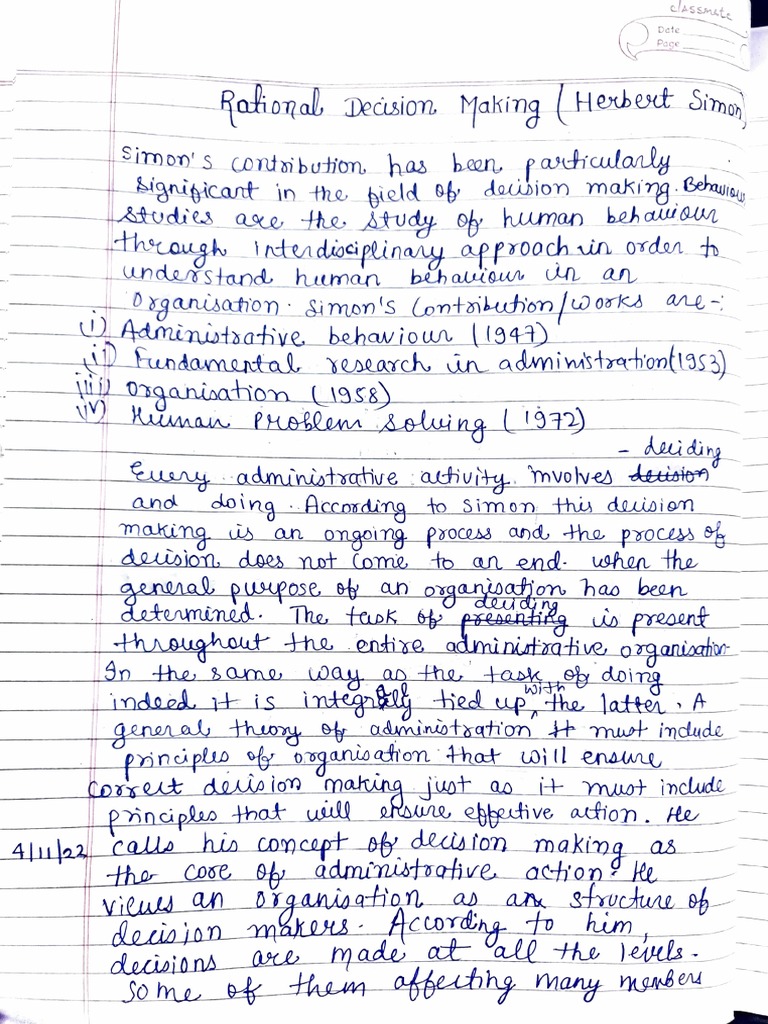 classmate
Date
Page
Rational Decision Making (Herbert Simon)
Simon's contribution has been particularly
significant in the field of decision making. Behaviour
studies are the study of human behaviour
through interdisciplinary approach in order to
understand human behaviour in an
organisation. Simon's contribution/works are -:
(i) Administrative behaviour (1947)
(ii) Fundamental research in administration (1953)
(iii) organisation (1958)
(iv) Human Problem Solving (1972)
- deciding
Every administrative activity involves decision
and doing. According to Simon this decision
making is an ongoing process and the process of
decision does not come to an end. when the
general purpose of an organisation has been
deciding
determined. The task of presenting is present
throughout the entire administrative organisation.
In the same way as the task of doing
indeed it is integrally tied up with the latter. A
general theory of administration it must include
principles of organisation that will ensure
correct decision making just as it must include
principles that will ensure effective action. He
4/11/22 calls his concept of decision making as
the core of administrative action. He
views an organisation as an structure of
decision makers. According to him,
decisions are made at all the levels.
Some of them affecting many members